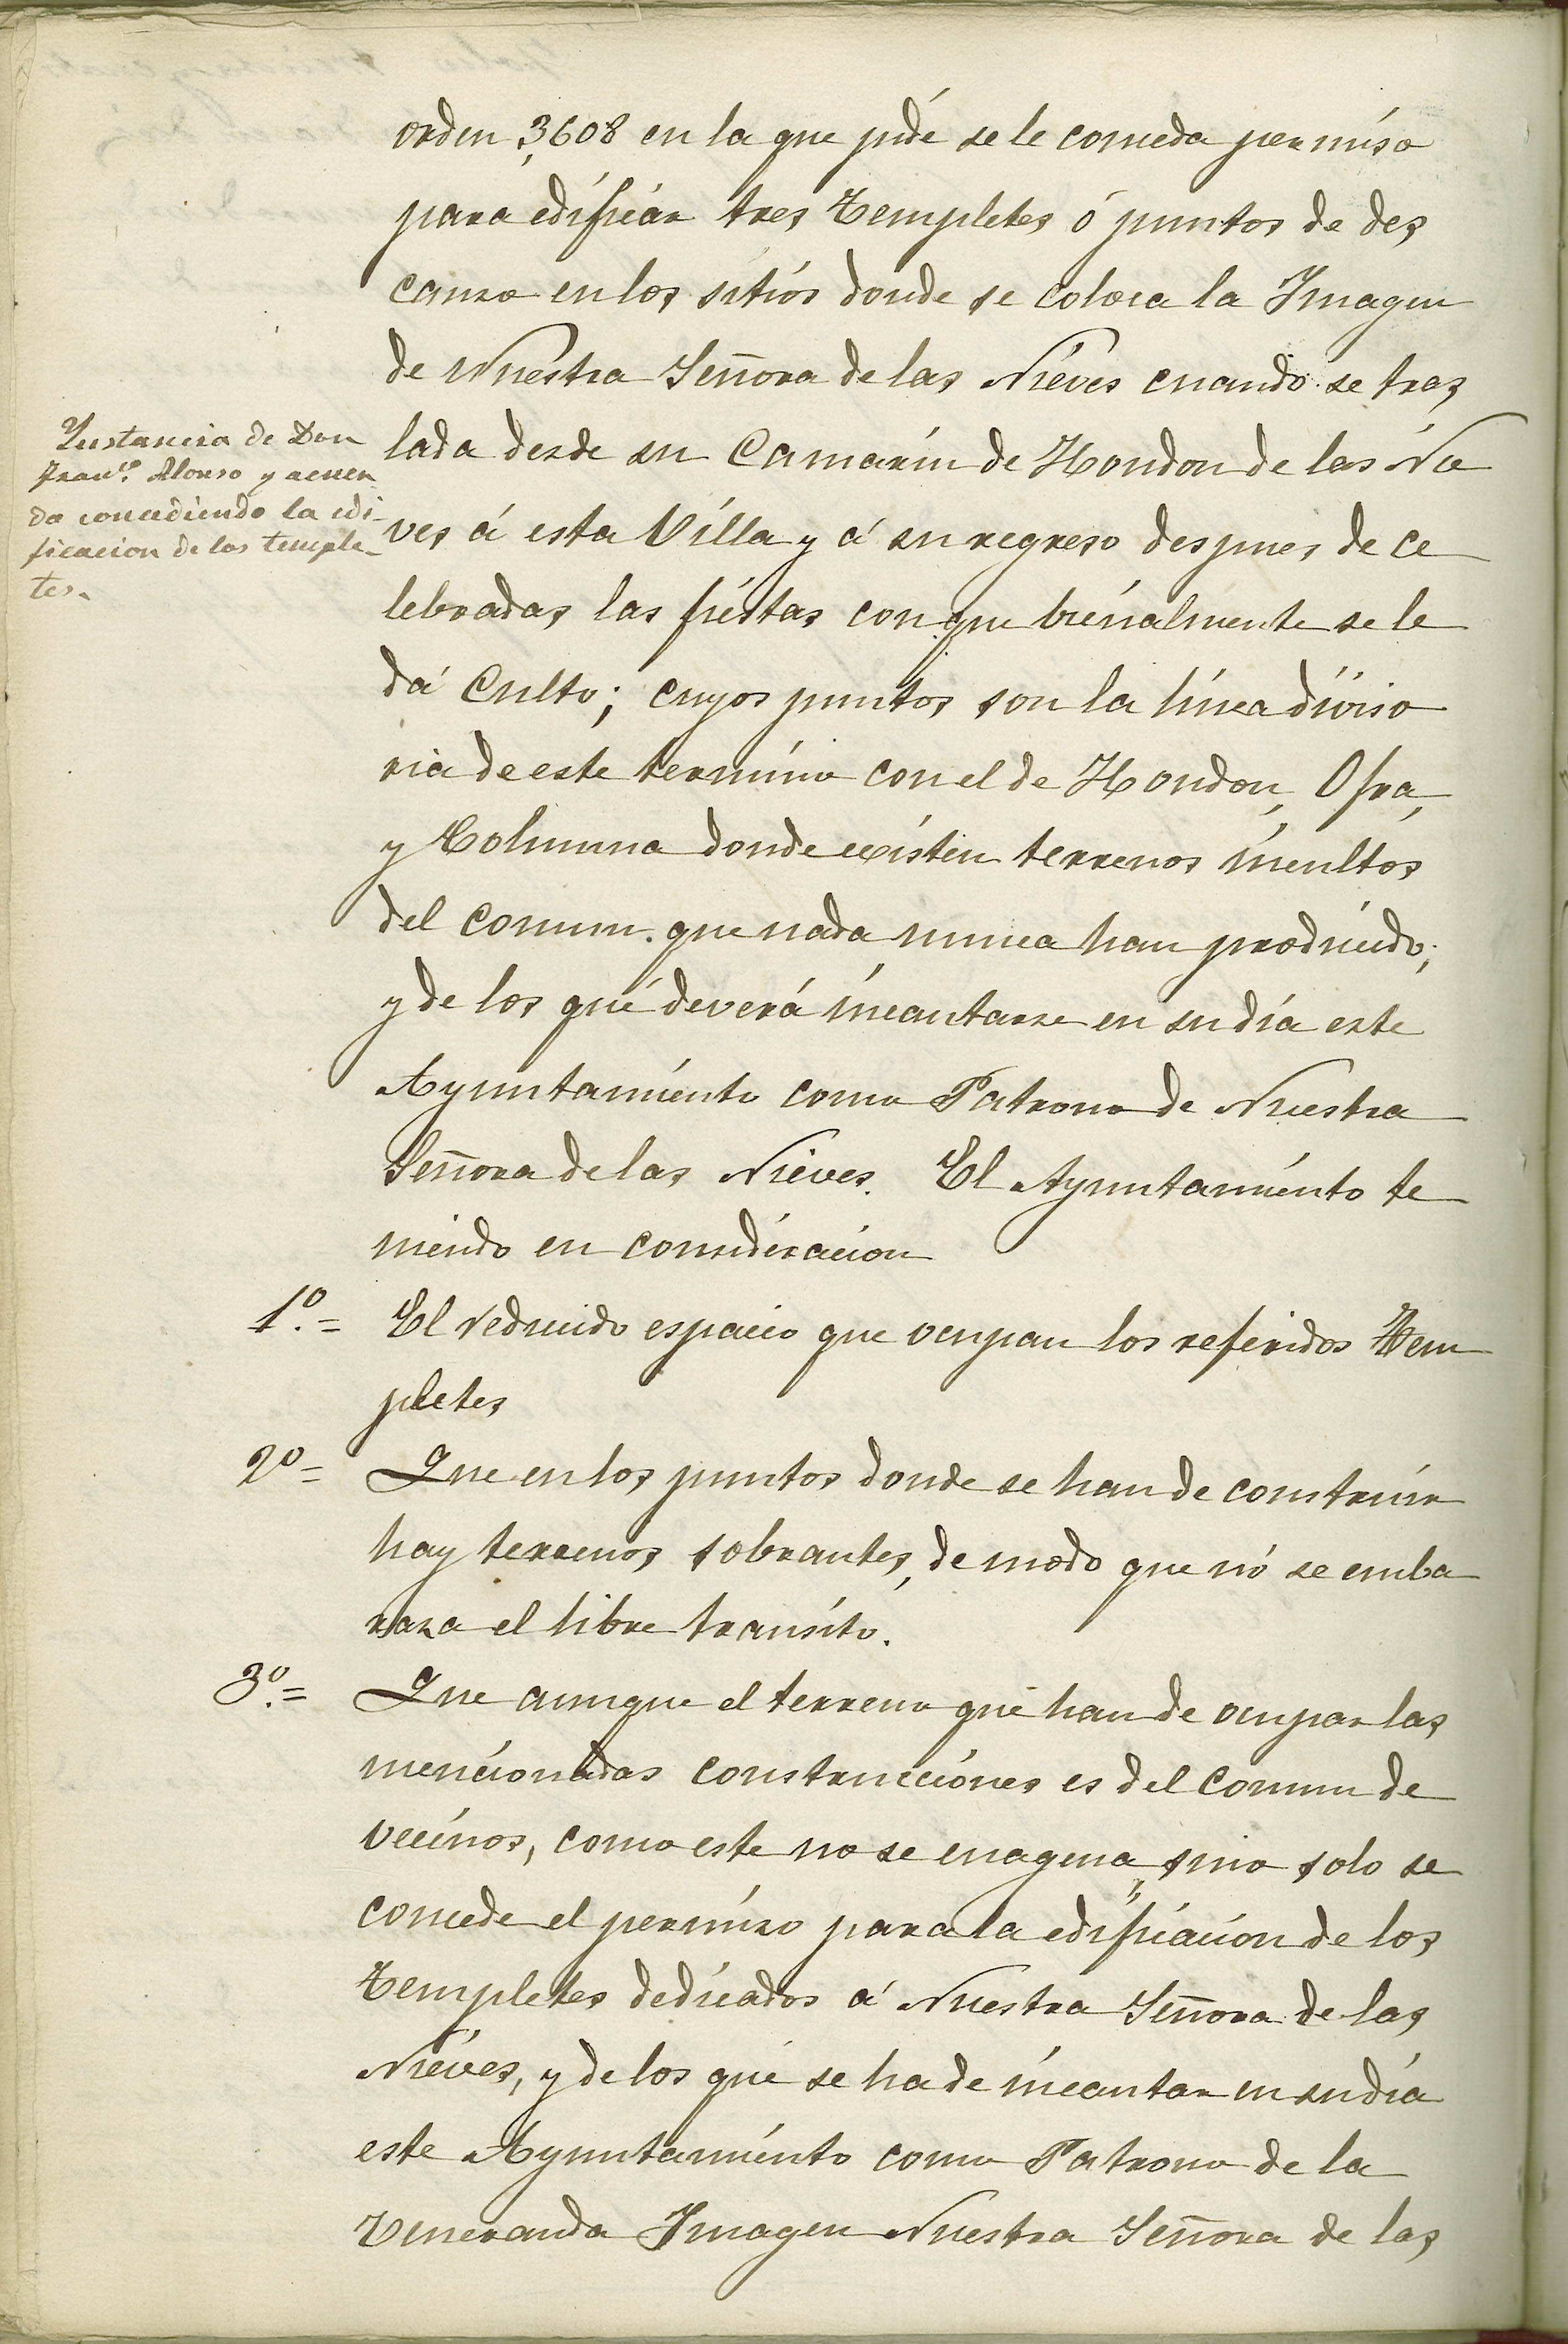 orden 3,608 en la que pide se le conceda permiso
para edificar tres templetes ó puntos de des
canso en los sitios donde se coloca la Imagen
de Nuestra Señora de las Nieves cuando se tras
lada desde su Camarin de Hondon de las Nie
ves á esta Villa y á su regreso despues de ce
lebradas las fiestas con que bienalmente se le
dá Culto; cuyos puntos son la linea diviso
ria de este termino con el de Hondon, Ofra,
y Columna donde existen terrenos incultos
del comun que nada nunca han producido;
y de los que deverá incautarse en su dia este
Ayuntamiento como Patrono de Nuestra
Señora de las Nieves. El Ayuntamiento te
niendo en consideracion
Instancia de Don
Franco. Alonso y acuer
do concediendo la edi-
ficacion de los temple-
tes.
1º.= El reducido espacio que ocupan los referidos Tem
pletes
2º= Que en los puntos donde se han de construir
hay terrenos sobrantes, de modo que nó se emba
raza el libre transito.
3º.= Que aunque el terreno que han de ocupar las
mencionadas construcciones es del comun de
vecinos, como este no se enagena, sino solo se
concede el permiso para la edificacion de los
templetes dedicados á Nuestra Señora de las
Nieves, y de los que se ha de incautar en su dia
este Ayuntamiento como Patrono de la
Veneranda Imagen Nuestra Señora de las